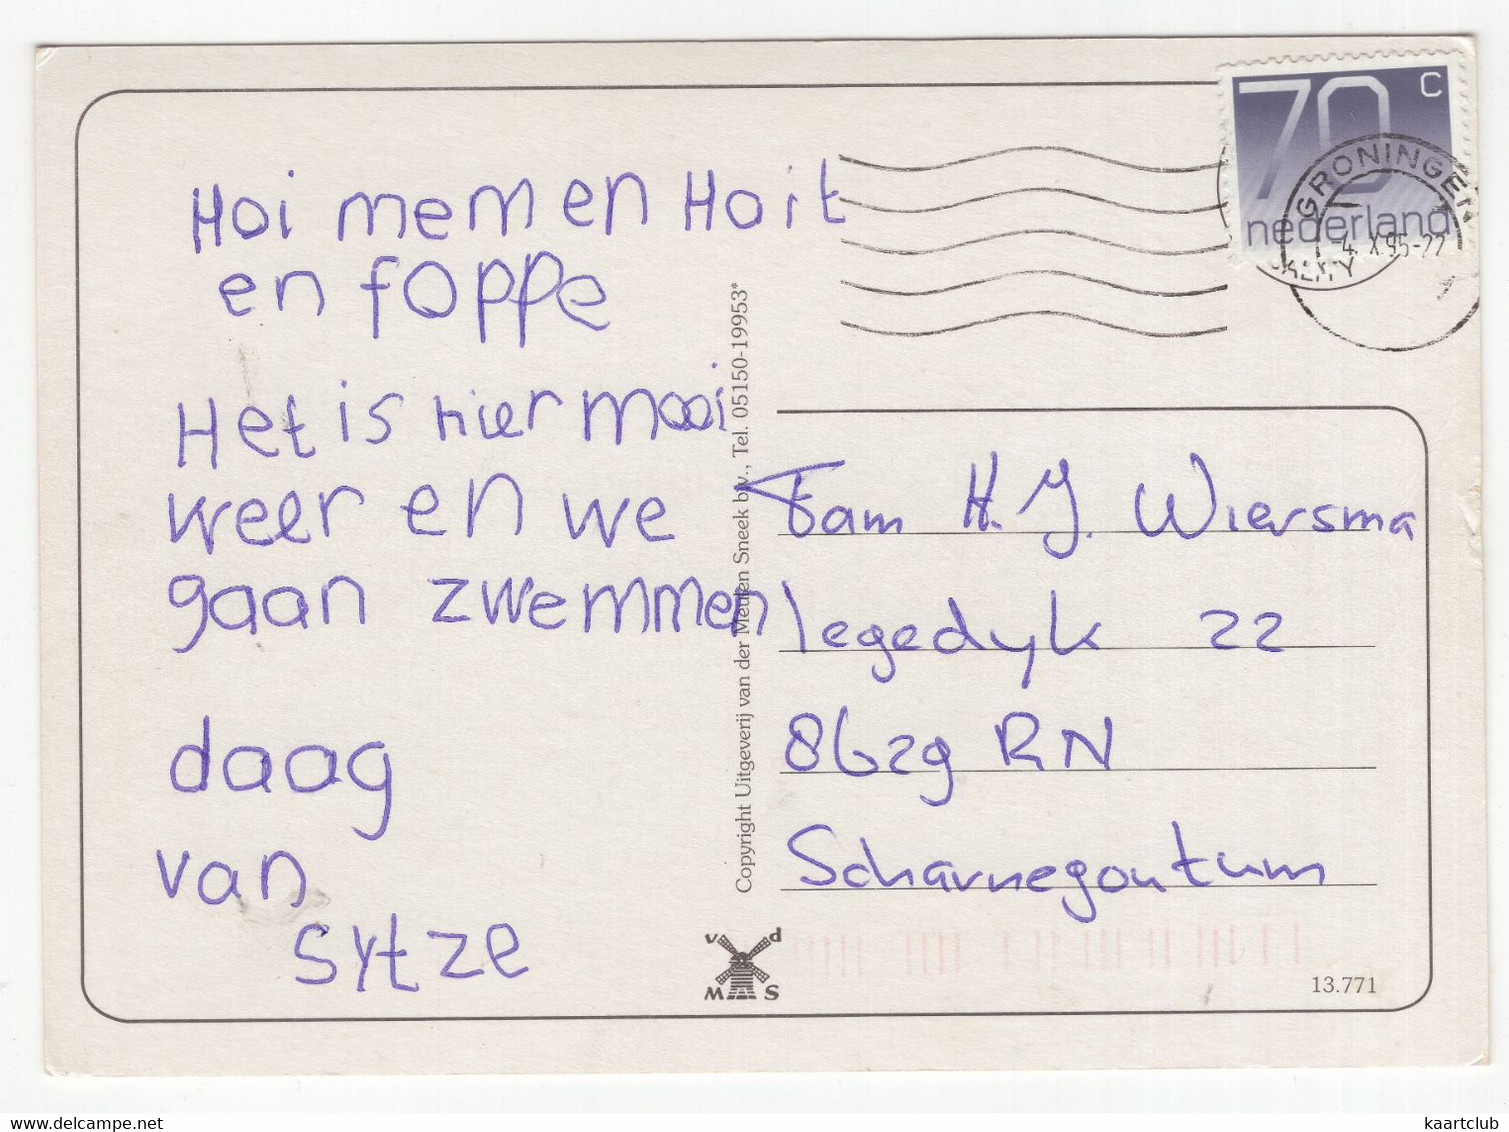 Hoi mem en Hoit
en foppe
Het is hier mooi
weer en we
gaan zwemmen
daag
van
sytze
Copyright Uitgeverij van der Meulen Sneek b.v., Tel. 05150-19953*
70 C
nederland
GRONINGEN
-4. X.95-22
Fam H. J. Wiersma
legedyk 22
8629 RN
Scharnegoutum
v d
M S
13.771
kaartclub